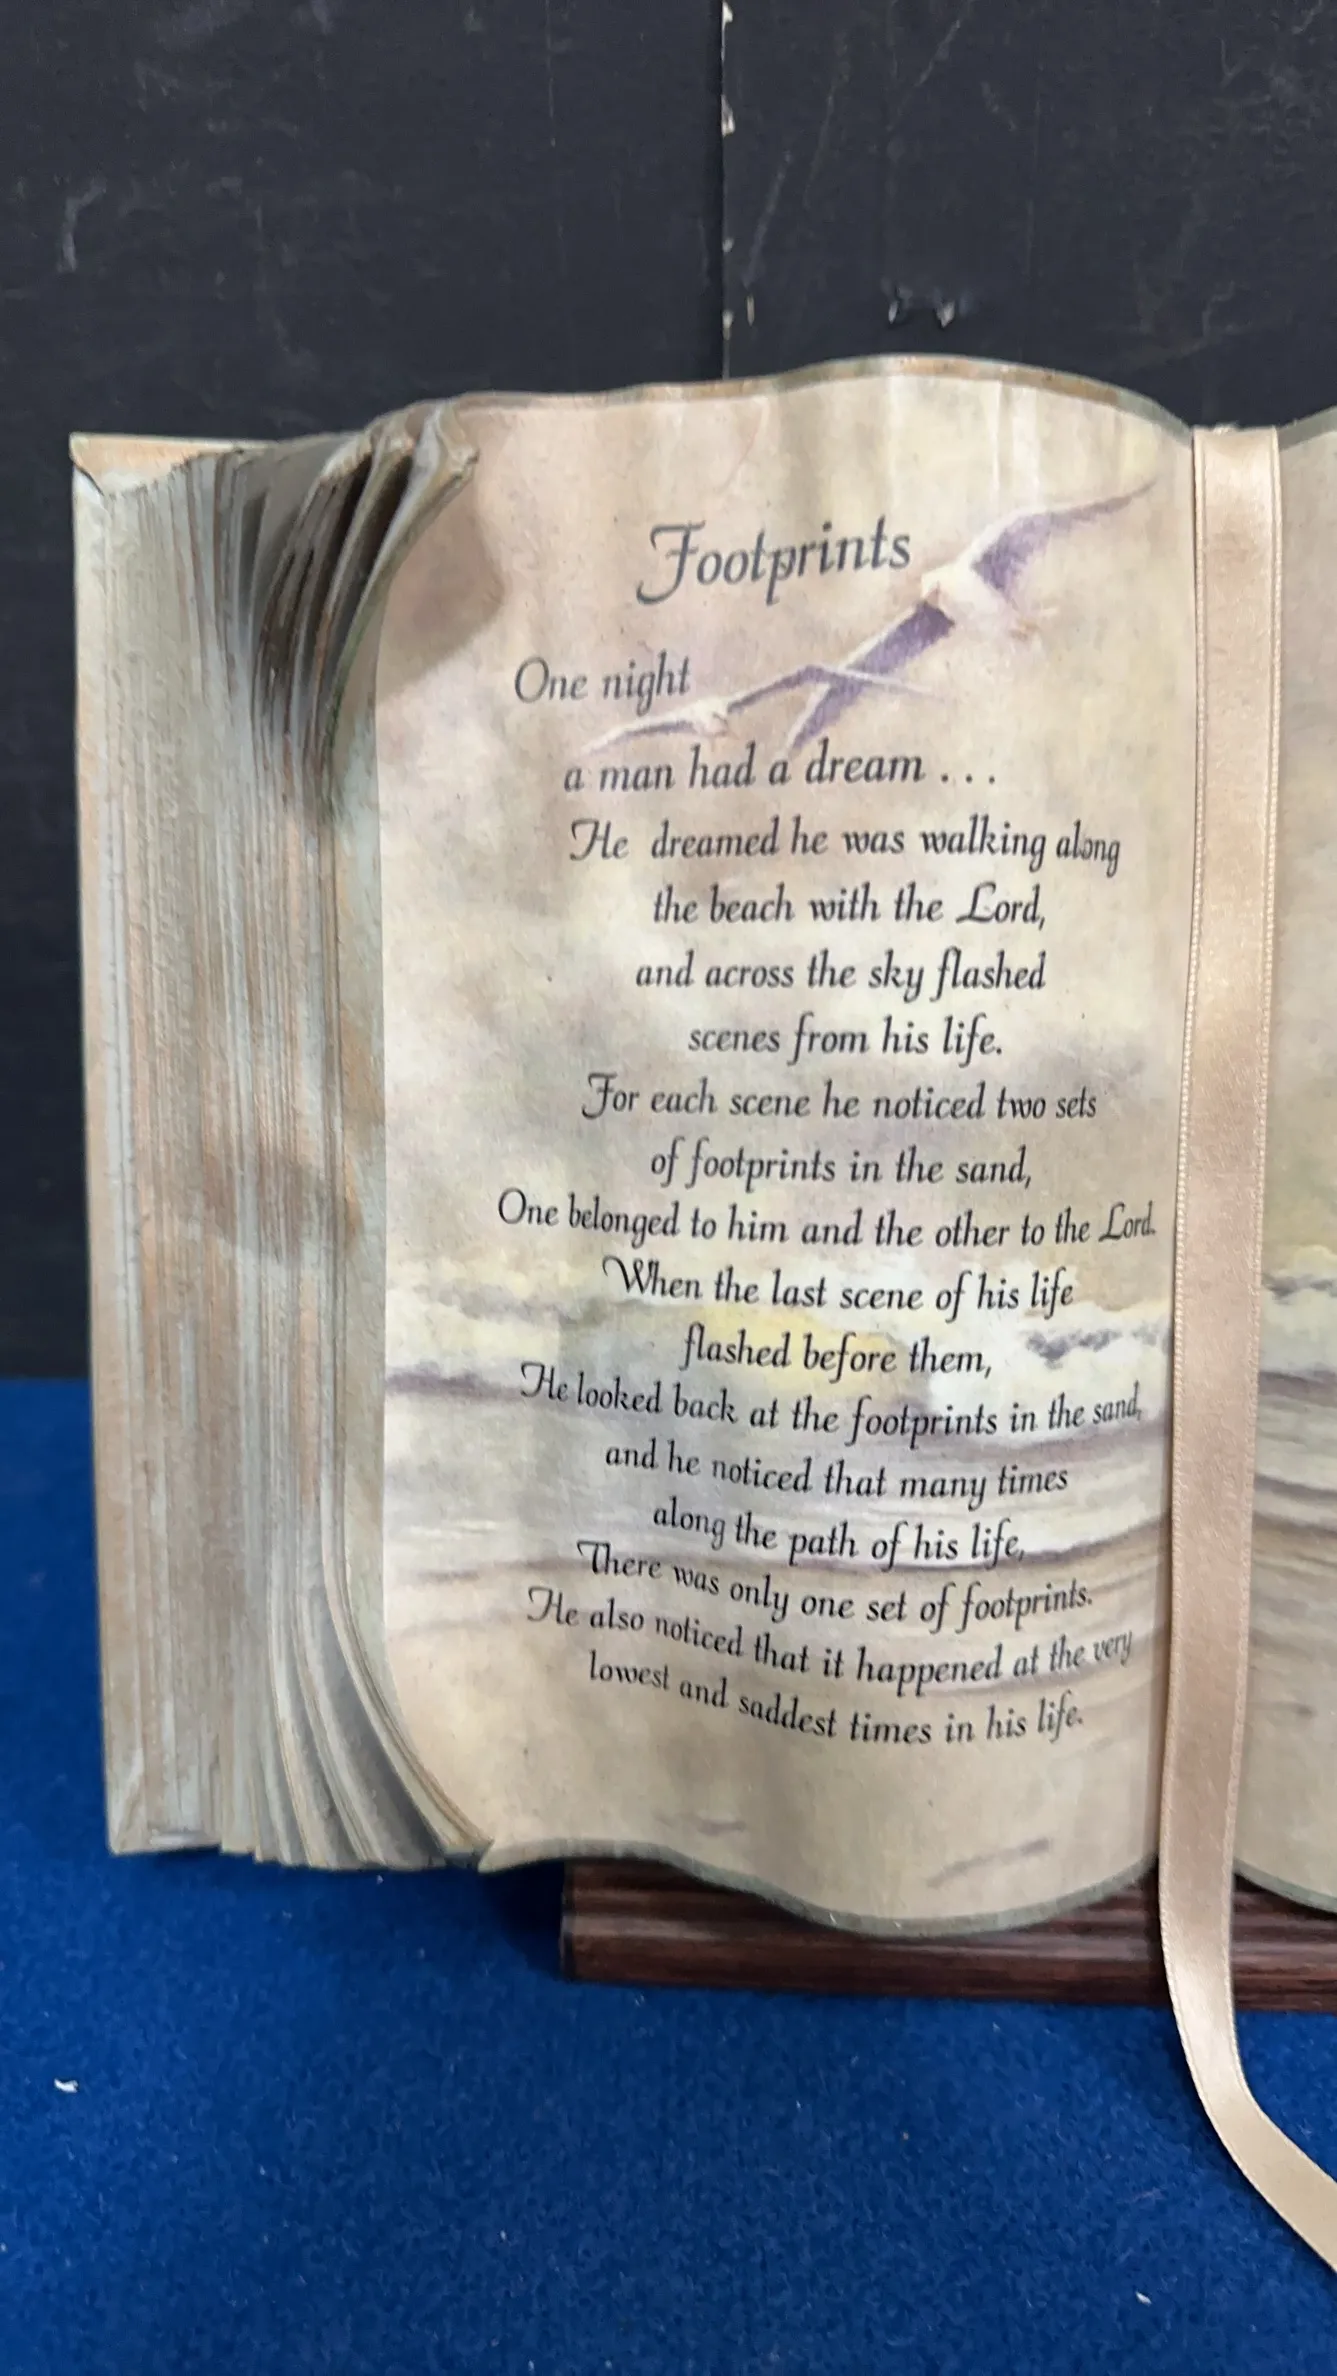 Footprints
One night
a man had a dream . . .
He dreamed he was walking along
the beach with the Lord,
and across the sky flashed
scenes from his life.
For each scene he noticed two sets
of footprints in the sand,
One belonged to him and the other to the Lord.
When the last scene of his life
flashed before them,
He looked back at the footprints in the sand,
and he noticed that many times
along the path of his life,
There was only one set of footprints.
He also noticed that it happened at the very
lowest and saddest times in his life.